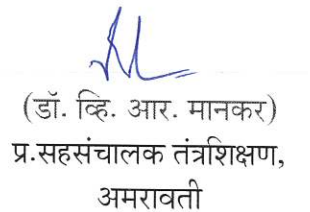 (डॉ. व्हि. आर. मानकर)
प्र.सहसंचालक तंत्रशिक्षण,
अमरावती